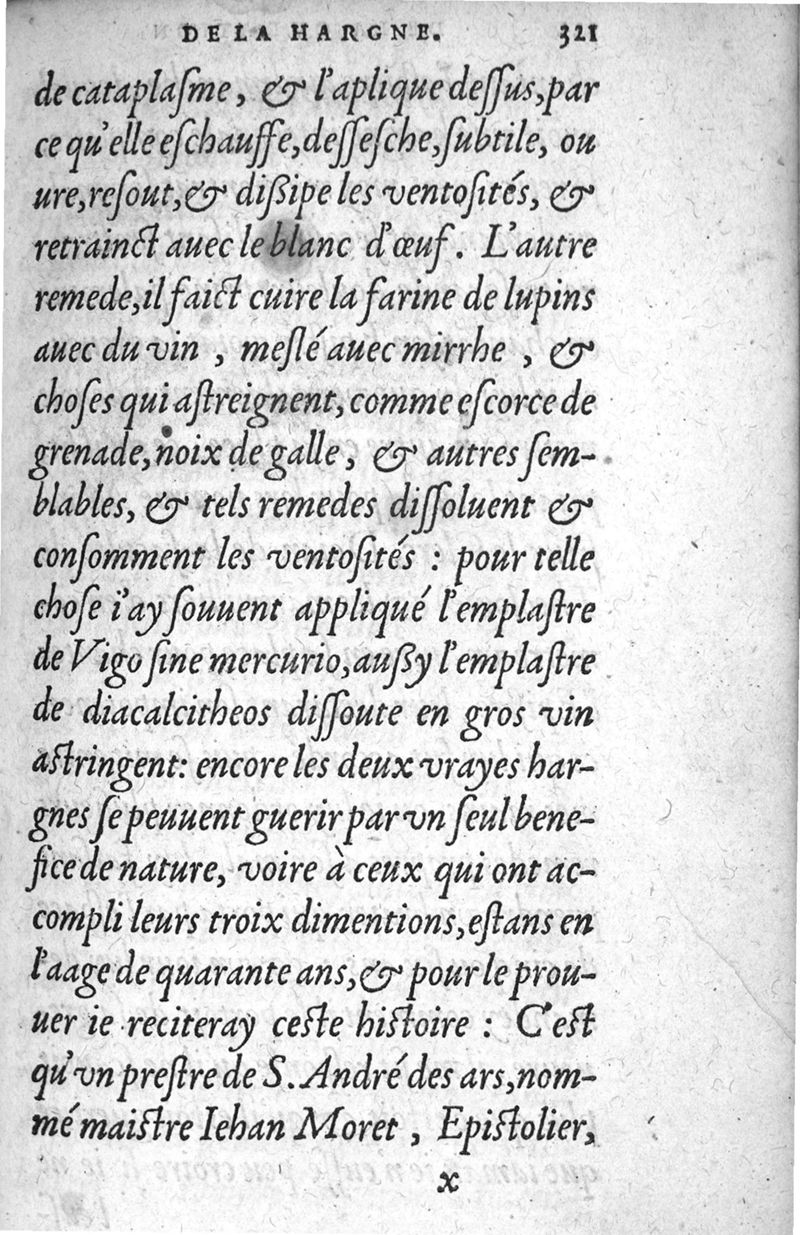 DE LA HARGNE. 321
de cataplaſme, & l'aplique deſſus, par
ce qu'elle eſchauffe, deſſeſche, ſubtile, ou
ure, reſout, & diſſipe les ventoſités, &
retrainct auec le blanc d'œuf. L'autre
remede, il faict cuire la farine de lupins
auec du vin, meſlé auec mirrhe, &
choſes qui aſtreignent, comme eſcorce de
grenade, noix de galle, & autres ſem-
blables, & tels remedes diſſoluent &
conſomment les ventoſités : pour telle
choſe i'ay ſouuent appliqué l'emplaſtre
de Vigo ſine mercurio, auſſy l'emplaſtre
de diacalcitheos diſſoute en gros vin
aſtringent: encore les deux vrayes har-
gnes ſe peuuent guerir par vn ſeul bene-
fice de nature, voire à ceux qui ont ac-
compli leurs troix dimentions, eſtans en
l'aage de quarante ans, & pour le prou-
uer ie reciteray ceſte hiſtoire : C'eſt
qu'vn preſtre de S. André des ars, nom-
mé maiſtre Iehan Moret, Epiſtolier,
x